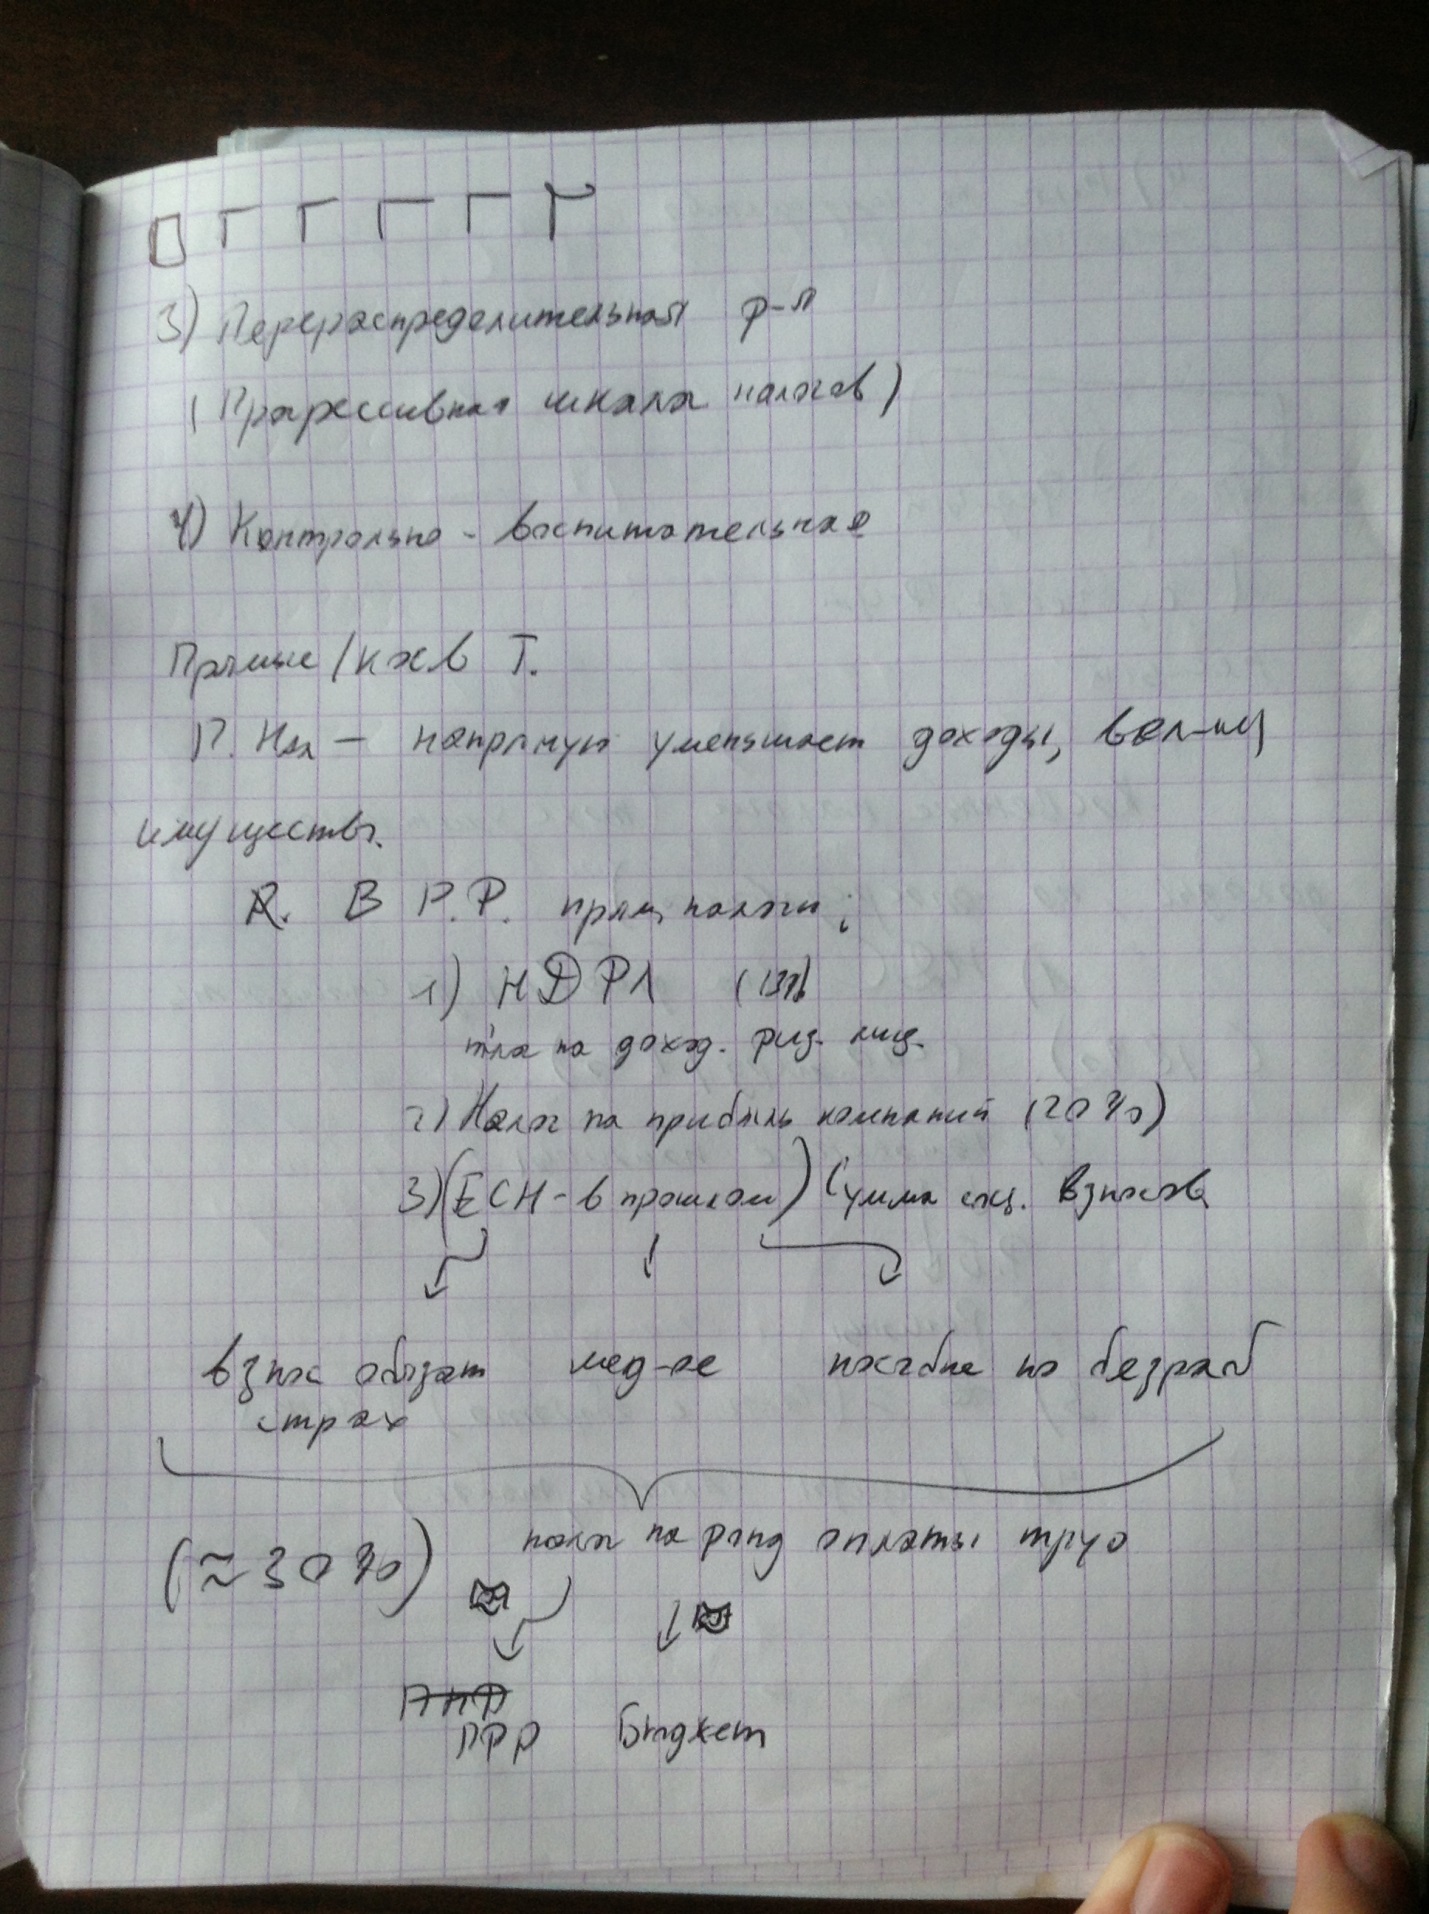 3) Перераспределительная ф-я
(Прогрессивная шкала налогов)
4) Контрольно - воспитательная
Прямые / косв Т.
П. Нал — напрямую уменьшает доходы, вел-ну
имуществ.
В Р.Р. прям налоги:
1) НДФЛ (13%)
на доход. физ. лиц.
2) Налог на прибыль компаний (20%)
3) (ЕСН - в прошлом) Сумма соц. взносов
взнос обязат мед-ое пособие по безраб
страх
(≈30%) налог на фонд оплаты труд
ПФР Бюджет